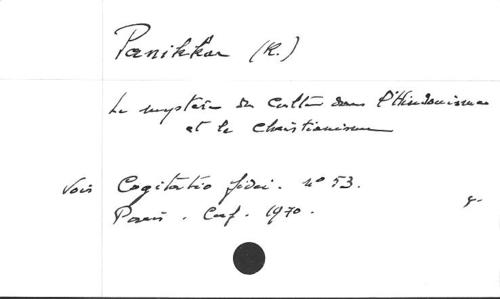 Panikkar (R.)
Le mystère du culte dans l'Hindouisme
et le Christianisme
Voir Cogitatio fidei. n° 53.
Paris. Cerf. 1970.